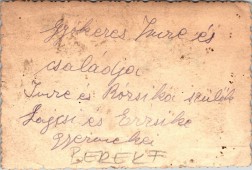 Gyökeres Imre és
családja
Imre és Borsika szülők
Lajcsi és Erzsike
gyermekei
BEREKF